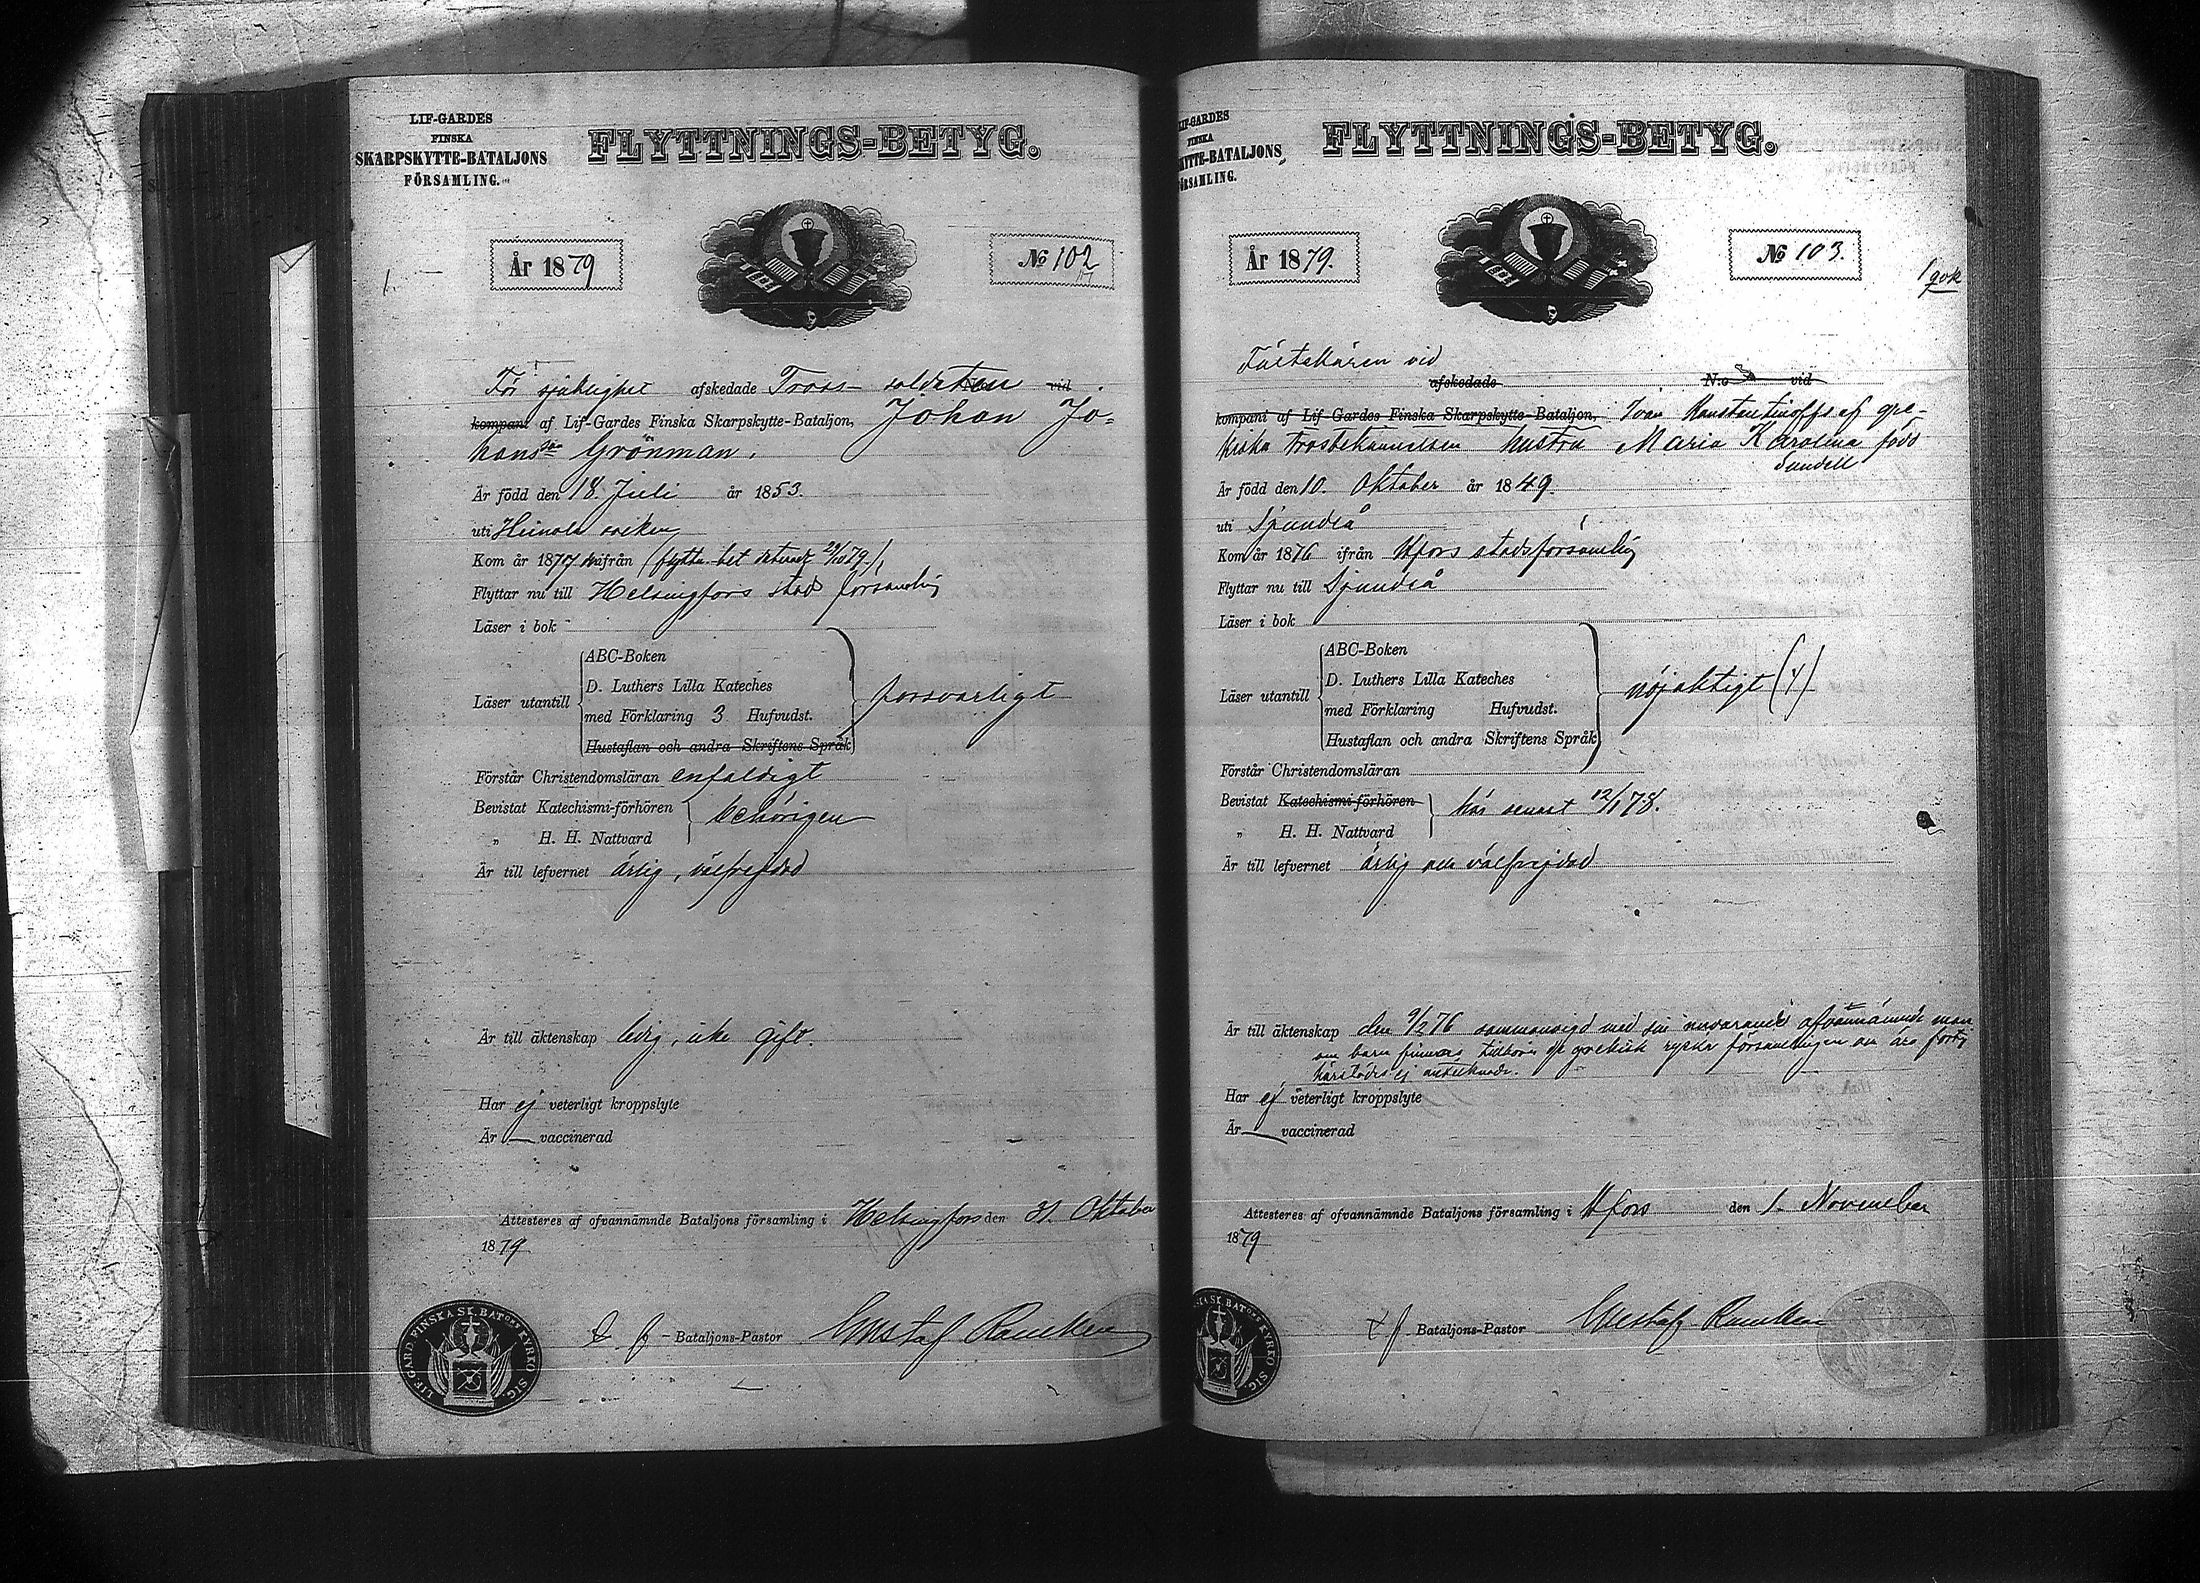 LIF-GARDES
FINSKA
SKARPSKYTTE-BATALJONS
FÖRSAMLING.
FLYTTNINGS-BETYG.
År 1879
No 102
1.
För sjuklighet afskedade Tross-soldaten vid
kompani af Lif-Gardes Finska Skarpskytte-Bataljon, Johan Jo-
hanssn Grönman.
Är född den 18. Juli år 1853.
uti Heinola socken
Kom år 1877 ifrån (flyttn. bet. daterad
Flyttar nu till Helsingfors stads församling
Läser i bok
Läser utantill
ABC-Boken
D. Luthers Lilla Kateches
med Förklaring 3 Hufvudst.
Hustaflan och andra Skriftens Språk
försvarligt
Förstår Christendomsläran enfaldigt
Bevistat Katechismi-förhören
„ H. H. Nattvard
behörigen
Är till lefvernet ärlig, välfrejdad
Är till äktenskap ledig, icke gift.
Har ej veterligt kroppslyte
Är — vaccinerad
Attesteres af ofvannämnde Bataljons församling i Helsingfors den 31. Oktober
1879
t. f. Bataljons-Pastor Gustaf Rancken
LIF-GARD. FINSKA SK. BATONS KYRKO SIG.
LIF-GARDES
FINSKA
KYTTE-BATALJONS
ÖRSAMLING.
FLYTTNINGS-BETYG.
År 1879.
No 103.
vid
afskedade N:o vid
kompani af Lif-Gardes Finska Skarpskytte-Bataljon, Ivan Konstantinoffs af gre-
kiska trosbekännelsen hustru Maria Karolina född
Sundell
Är född den 10. Oktober år 1849.
uti Sjundeå
Kom år 1876 ifrån Hfors stadsförsamling
Flyttar nu till Sjundeå
Läser i bok
Läser utantill
ABC-Boken
D. Luthers Lilla Kateches
med Förklaring Hufvudst.
Hustaflan och andra Skriftens Språk
nöjaktigt
Förstår Christendomsläran
Bevistat Katechismi-förhören
„ H. H. Nattvard
här senast 12/1 78.
Är till lefvernet ärlig och välfrejdad
Är till äktenskap den 9/2 76 sammanvigd med sin nuvarande ofvannämnde man
om barn finnas tillhöra de grekisk ryska församlingen
härstädes ej antecknade.
Har ej veterligt kroppslyte
Är — vaccinerad
Attesteres af ofvannämnde Bataljons församling i Hfors den 1. November
1879
t f Bataljons-Pastor Gustaf Rancken
SK. BATONS KYRKO SIG.